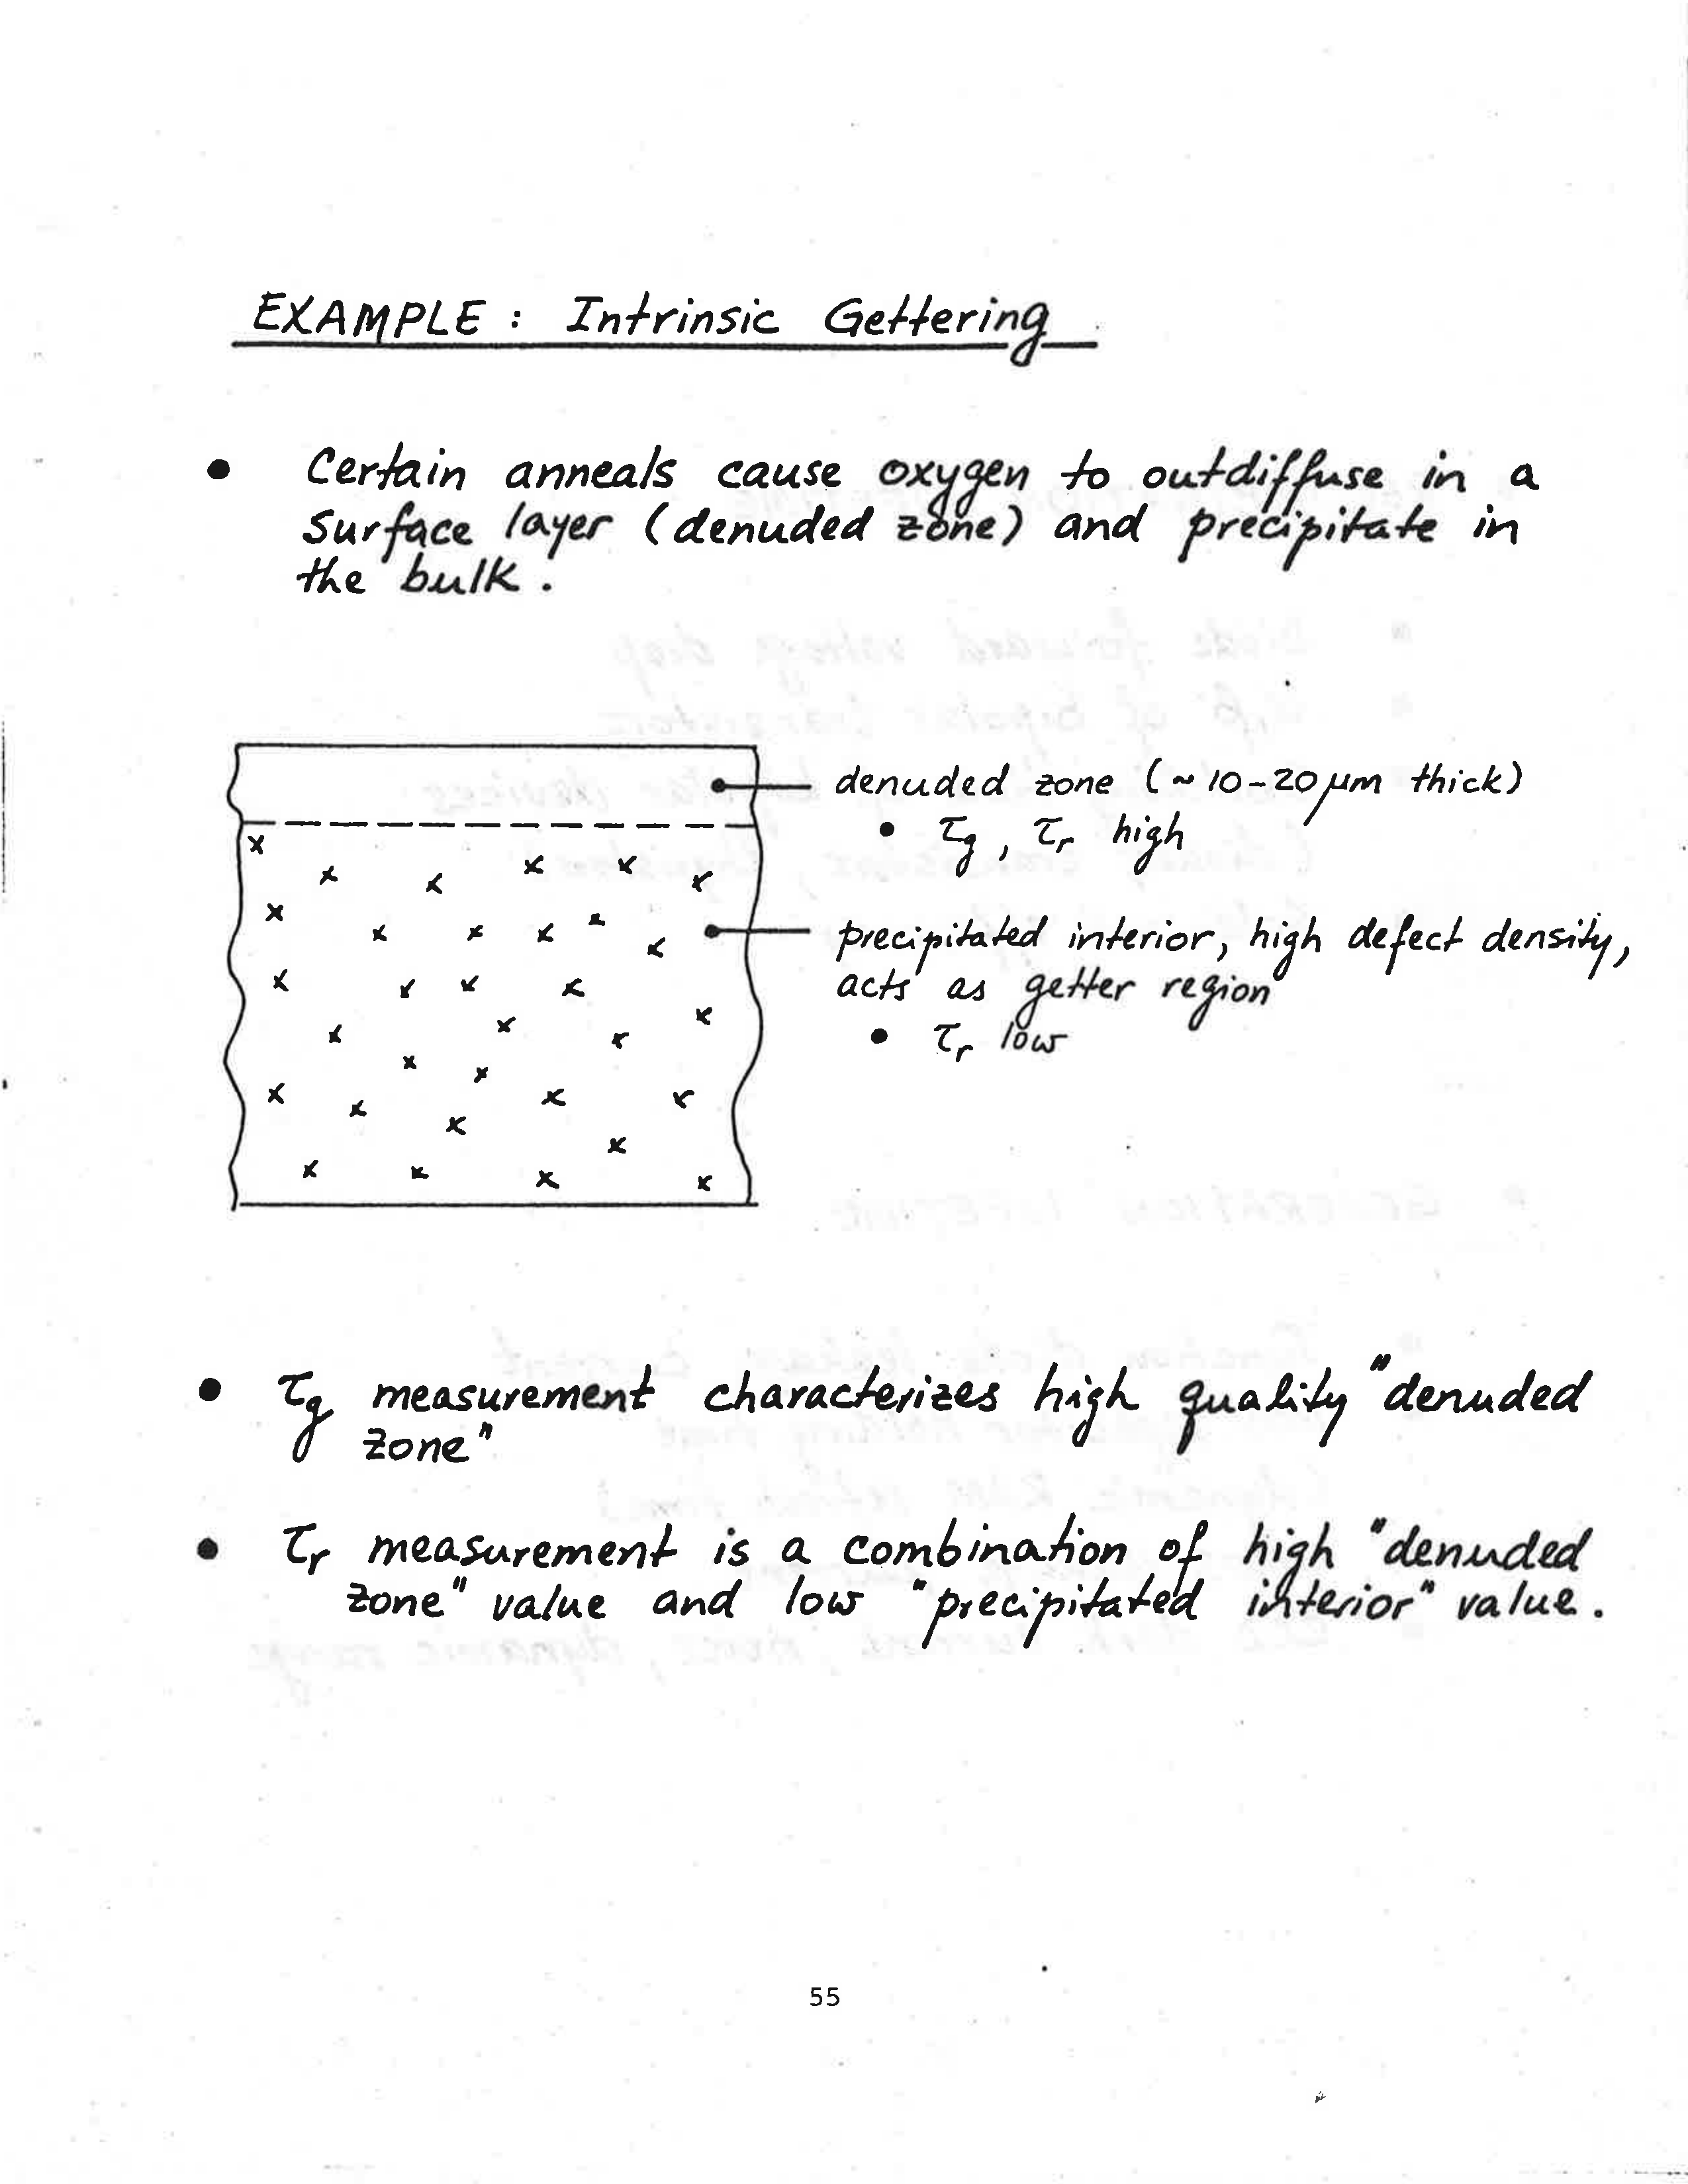 EXAMPLE : Intrinsic Gettering
• Certain anneals cause oxygen to outdiffuse in a
surface layer (denuded zone) and precipitate in
the bulk.
denuded zone (~ 10-20 μm thick)
• τg, τr high
precipitated interior, high defect density,
acts as getter region
• τr low
• τg measurement characterizes high quality "denuded
zone"
• τr measurement is a combination of high "denuded
zone" value and low "precipitated interior" value.
55